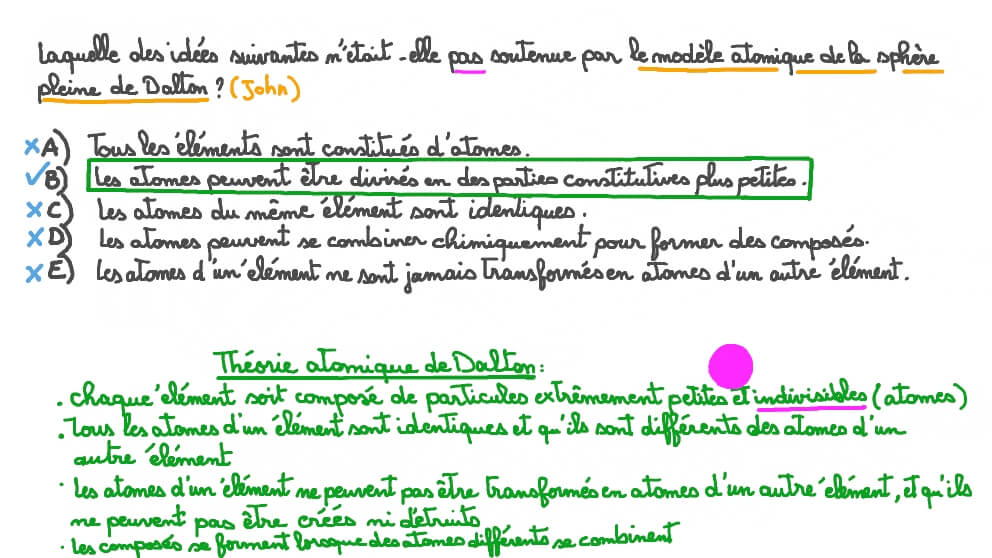 Laquelle des idées suivantes n'était-elle pas soutenue par le modèle atomique de la sphère
pleine de Dalton ? (John)
A) Tous les éléments sont constitués d'atomes.
B) Les atomes peuvent être divisés en des parties constitutives plus petites.
C) Les atomes du même élément sont identiques.
D) Les atomes peuvent se combiner chimiquement pour former des composés.
E) Les atomes d'un élément ne sont jamais transformés en atomes d'un autre élément.
Théorie atomique de Dalton :
. chaque élément soit composé de particules extrêmement petites et indivisibles (atomes)
. Tous les atomes d'un élément sont identiques et qu'ils sont différents des atomes d'un
autre élément
. Les atomes d'un élément ne peuvent pas être transformés en atomes d'un autre élément, et qu'ils
ne peuvent pas être créés ni détruits
. Les composés se forment lorsque des atomes différents se combinent